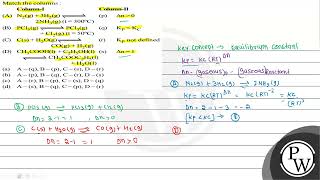 Match the columns:
Column-I
Column-II
(A) N₂(g) + 3H₂(g) ⇌
2NH₃(g) (t = 300°C)
(p) Δn > 0
(B) PCl₅(g) ⇌ PCl₃(g) +
Cl₂(g) (t = 50°C)
(q) Kp < Kc
(C) C(s) + H₂O(g) ⇌
CO(g) + H₂(g)
(r) Kp not defined
(D) CH₃COOH(l) + C₂H₅OH(l) ⇌
CH₃COOC₂H₅(l)
+ H₂O(l)
(s) Δn = 1
(a) A – (q), B – (p), C – (r), D – (s)
(b)
(c)
(d)
Key concept → Equilibrium constant
Kp = Kc (RT)^Δn
Δn = (gaseous)P - (gaseous)Reactant
(A) N₂(g) + 3H₂(g) ⇌ 2NH₃(g)
Kp = Kc (RT)^Δn = Kc (RT)⁻² = Kc/(RT)²
Δn = 2 - 1 - 3 = -2
[Kp < Kc] → (q)
(B) PCl₅(g) ⇌ PCl₃(g) + Cl₂(g)
Δn = 2 - 1 = 1, Δn > 0
(C) C(s) + H₂O(g) ⇌ CO(g) + H₂(g)
Δn = 2 - 1 = 1 Δn > 0
PW